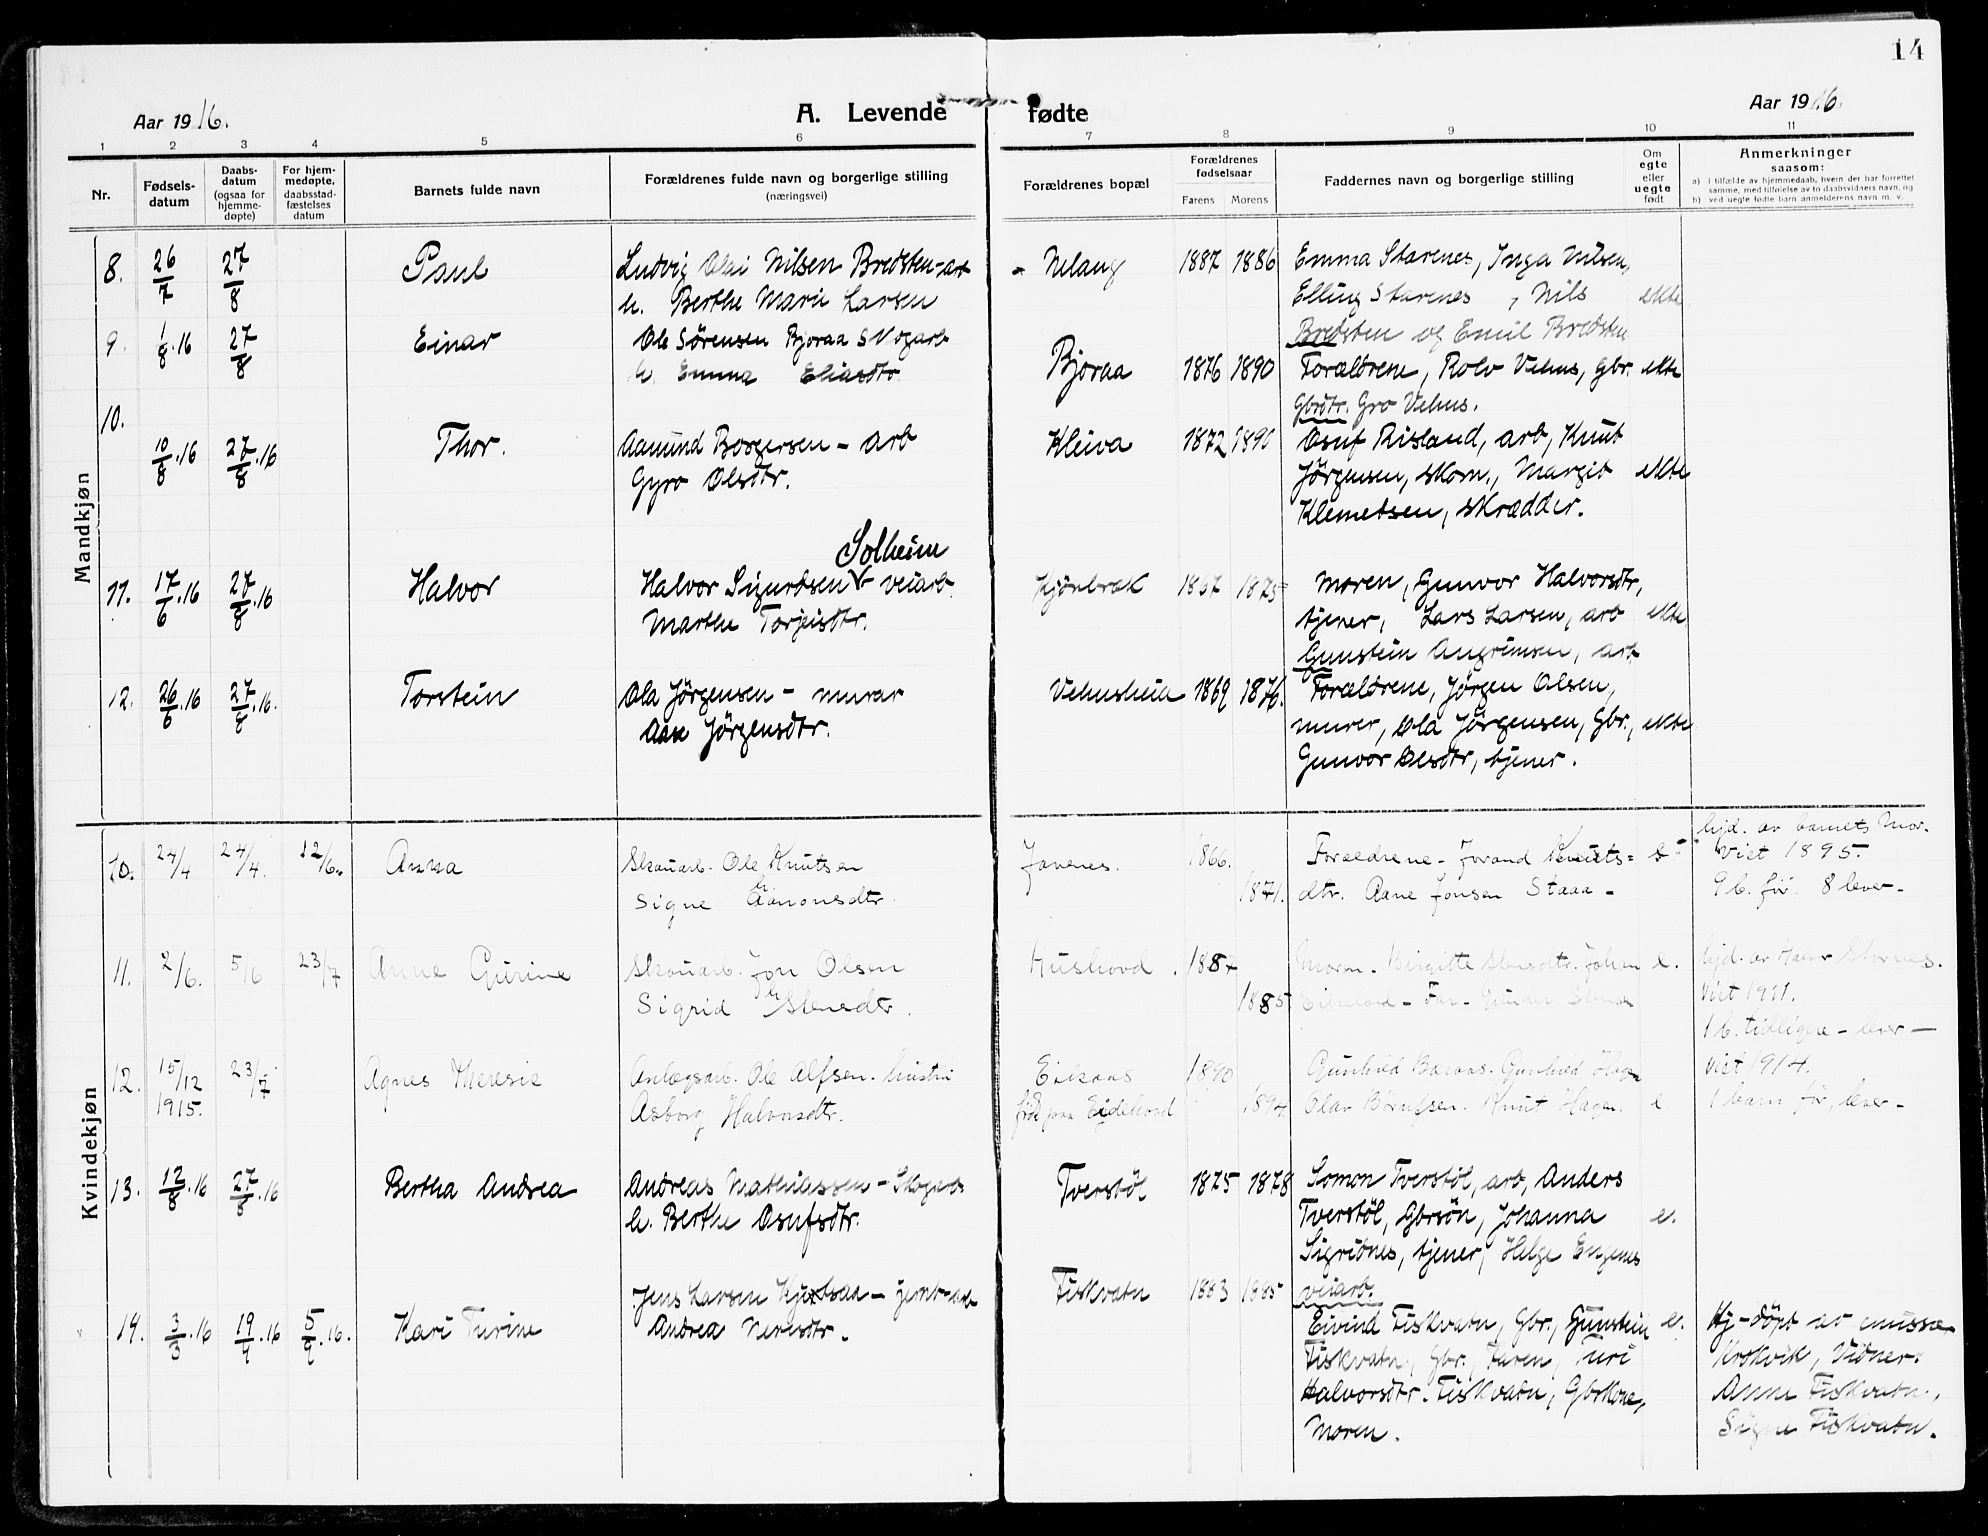 14
Aar 1916. A. Levende fødte Aar 1916.
1 2 3 4 5 6 7 8 9 10 11
Nr. Fødsels-datum Daabs-datum (ogsaa for hjemme-døpte) For hjem-medøpte, daabsstad-fæstelses datum Barnets fulde navn Forældrenes fulde navn og borgerlige stilling (næringsvei) Forældrenes bopæl Forældrenes fødselsaar Farens Morens Faddernes navn og borgerlige stilling Om egte eller uegte født Anmerkninger saasom:
a) i tilfælde av hjemmedaab, hvem der har forrettet samme, med tilføielse av to daabsvidners navn, og
b) ved uegte fødte barn anmelderens navn m. v.
Mandkjøn
8. 26/7 27/8 Paul Ludvig Olai Nilsen Bredsten-arb Nelaug 1887 1886 Emma Starenes, Inga Nilsen,
h. Berthe Marie Larsen Elling Starenes, Nils ekte
Bredsten og Emil Bredsten
9. 1/8.16 27/8 Einar Ole Sørensen Bjoraa Skogarb
h. Emma Eliasdtr. Bjoraa 1876 1890 Forældrene, Rolv Vehus, Gbr. ekte
Gbrdtr. Gro Vehus.
10. 10/8.16 27/8.16 Thor. Aamund Borgersen - arb Kleiva 1872 1890 Osuf Risland, arb, Knut
Gyro Olsdtr. Jørgensen, skom., Margit ekte
Klemetsen, skrædder.
Solheim
11. 17/6.16 27/8.16 Halvor Halvor Sigurdsen - veiarb. Kjønbrok 1867 1875 Moren, Gunvor Halvorsdtr,
Marthe Torjeisdtr. tjener, Lars Larsen, arb ekte
Gunstein Angrimsen, arb
12. 26/6.16 27/8.16. Torstein Ola Jørgensen - murar Vehusheia 1869 1876. Forældrene, Jørgen Olsen,
Aase Jørgensdtr. murer, Ola Jørgensen, Gbr., ekte
Gunvor Olsdtr, tjener.
Kvindekjøn
10. 24/4 24/4. 12/6. Anna Skouarb. Ole Knutsen Jovenes. 1866. Forældrene - Jorand Knuts= hjd. av barnets Mor.
Viet 1895.
Signe Aanonsdtr. 1871. dtr. Aane Jonsen Staaa - 9 b. før 8 lever -
11. 2/6. 5/6 23/7 Anne Gurine Skouarb. Jon Olsen Hushovd. 1887 Moren. Birgitte Stensdtr. Johan e. hjd. av Halvor Stovnes.
Sigrid Stensdtr. 1885. Far - Gunder Stensen Viet 1911.
1 b. tidligere - lever -
12. 15/12 1915. 23/7 Agnes Therese Anlægsarb. Ole Alfsen. hustru 1890 Gunhild Baraas. Gunhild Hagen Viet 1914.
Asborg Halvorsdtr. fød paa Eidehovd 1894. Olav Knut Hagen. e. 1 barn før, lever -
13. 12/8.16 27/8.16 Bertha Andrea Andreas Mathiassen - Skogarb Tverstøl 1875 1878 Somon Tverstøl, arb, Anders
h. Berthe Osufsdtr. Tverstøl, Gbrsøn, Johanna e.
Sigridnes, tjener, Helge Engenes
veiarb.
14. 3/3.16 19/4.16 5/9.16. Kari Turine Jens Larsen - jernb-arb Fiskvatn 1883 1885
Andrea Eivind Fiskvatn, Gbr., Gunstein e. Hj-døpt av emissær
Fiskvatn, Gbr., Faren, Turi Krokvik, Vidner:
Halvorsdtr. Fiskvatn, Gbrkone, Anne Fiskvatn,
Moren. Signe Fiskvatn.